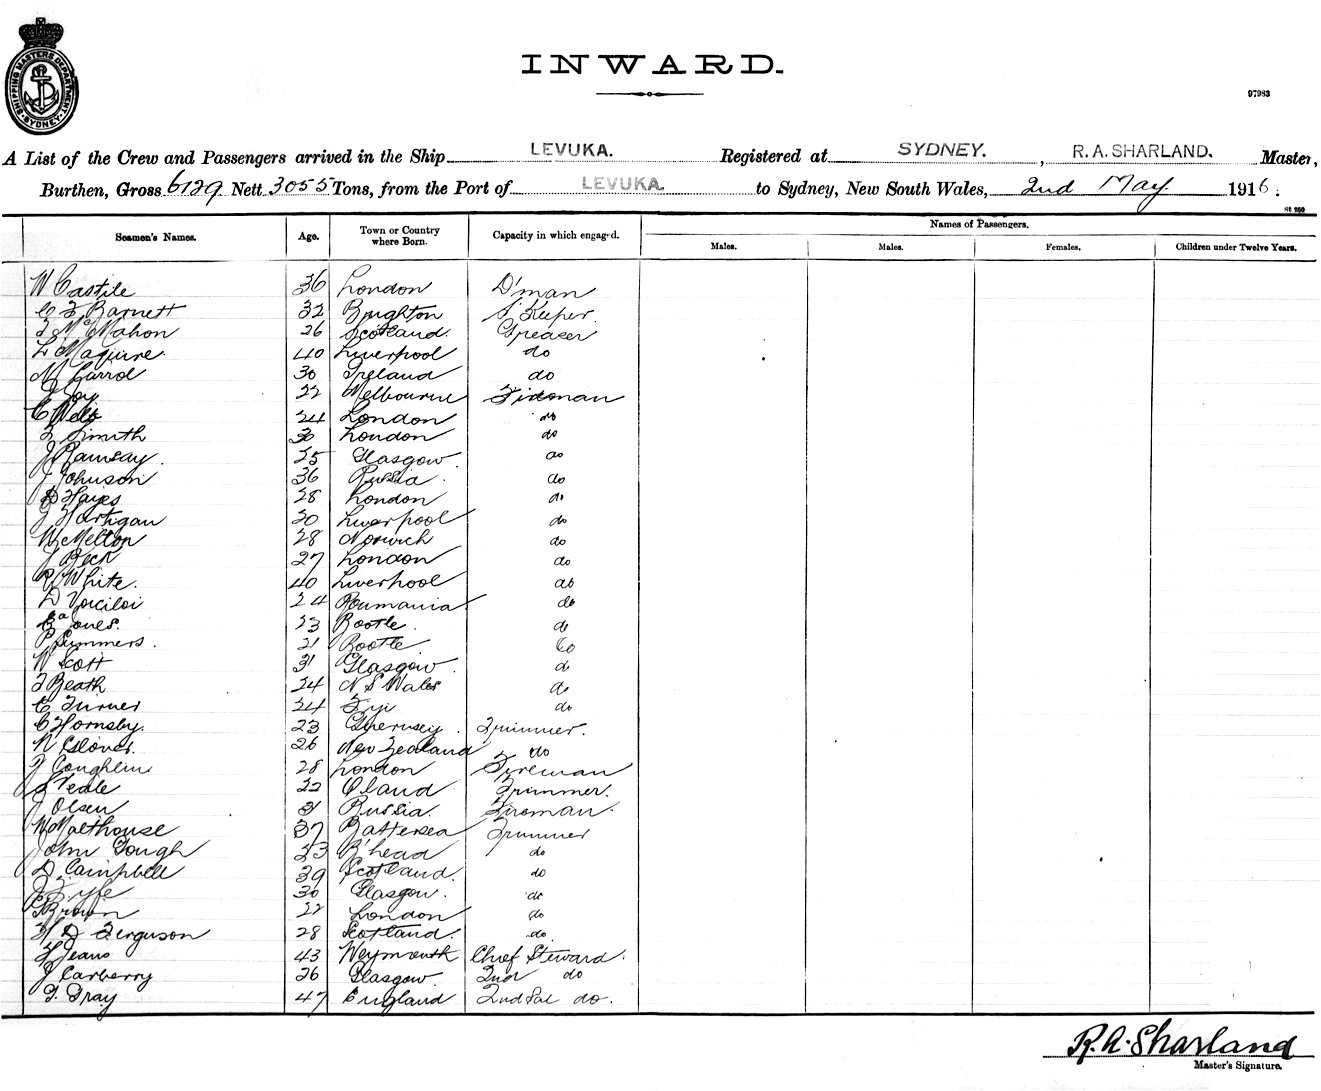 SHIPPING MASTERS DEPARTMENT
SYDNEY
INWARD.
97983
A List of the Crew and Passengers arrived in the Ship LEVUKA. Registered at SYDNEY. , R. A. SHARLAND. Master,
Burthen, Gross 6129 Nett 3055 Tons, from the Port of LEVUKA. to Sydney, New South Wales, 2nd May. 1916.
St 250
Seamen's Names. Age. Town or Country where Born. Capacity in which engaged. Names of Passengers.
Males. Males. Females. Children under Twelve Years.
W Castile 36 London D'man
C F Barnett 32 Brighton S' Keeper.
T McMahon 26 Scotland. Greaser
L Maguire. 40 Liverpool do
M Carrol 30 Ireland do
J Joy 22 Melbourne Fireman
C Welb 24 London do
F Smith 30 London do
J Ramsay. 25 Glasgow. do
J Johnson 36 Russia. do
D Hayes 28 London do
J Hartigan 30 Liverpool do
W Melton 28 Norwich do
J Beck 27 London do
R White. 40 Liverpool do
D Voiciloi 24 Roumania do
Ea Jones. 23 Bootle. do
P Summers. 21 Bootle. do
W Scott 31 Glasgow. do
T Beath 24 N S Wales do
C Turner 24 Fiji do
C Hornsby. 23 Guernsey. Trimmer.
N Glover. 26 New Zealand do
J Coughlin 28 London Fireman
J Veale 22 Oland Trimmer.
J Olsen 31 Russia. Fireman.
W Malthouse 37 Battersea Trimmer
John Gough 23 B'head do
D. Campbell 39 Scotland. do
J Fyfe 30 Glasgow. do
G Brown 22 London do
H D Ferguson 28 Scotland. do.
F Jeans 43 Weymouth Chief Steward.
J Carberry 26 Glasgow. 2nd do
T. Gray 47 England 2nd Sal do.
R. A. Sharland
Master's Signature.